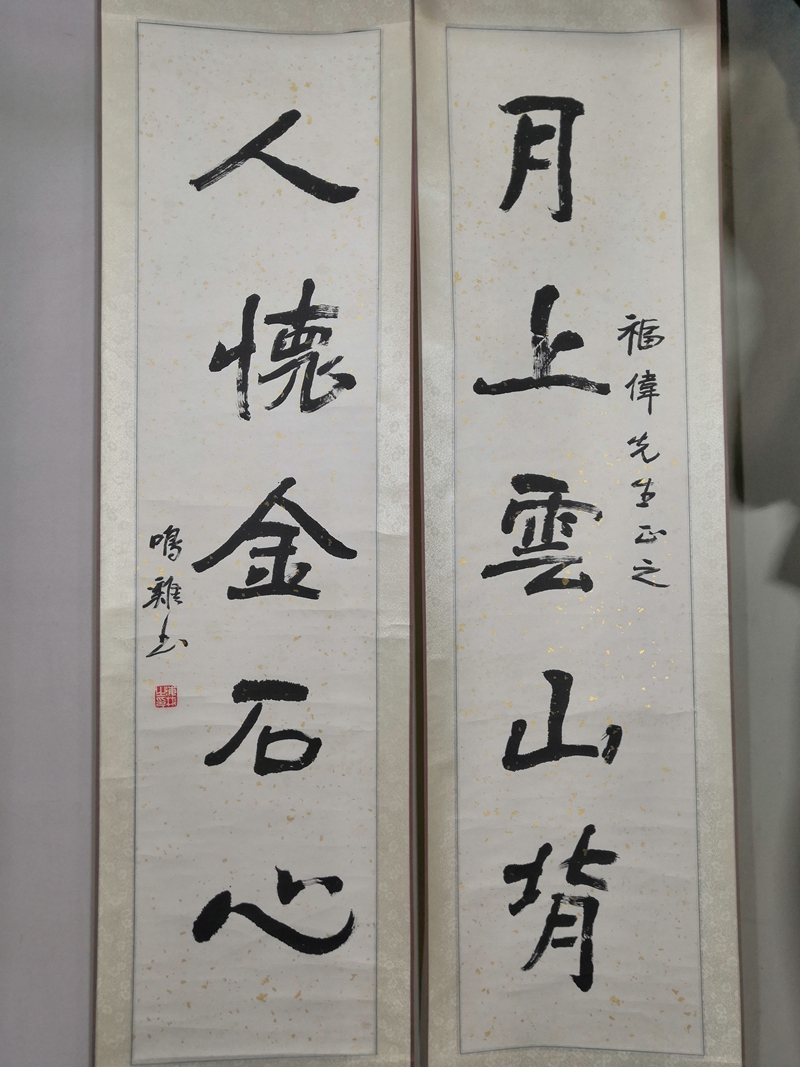 福偉先生正之
月上雲山背
人懷金石心
鳴雞书